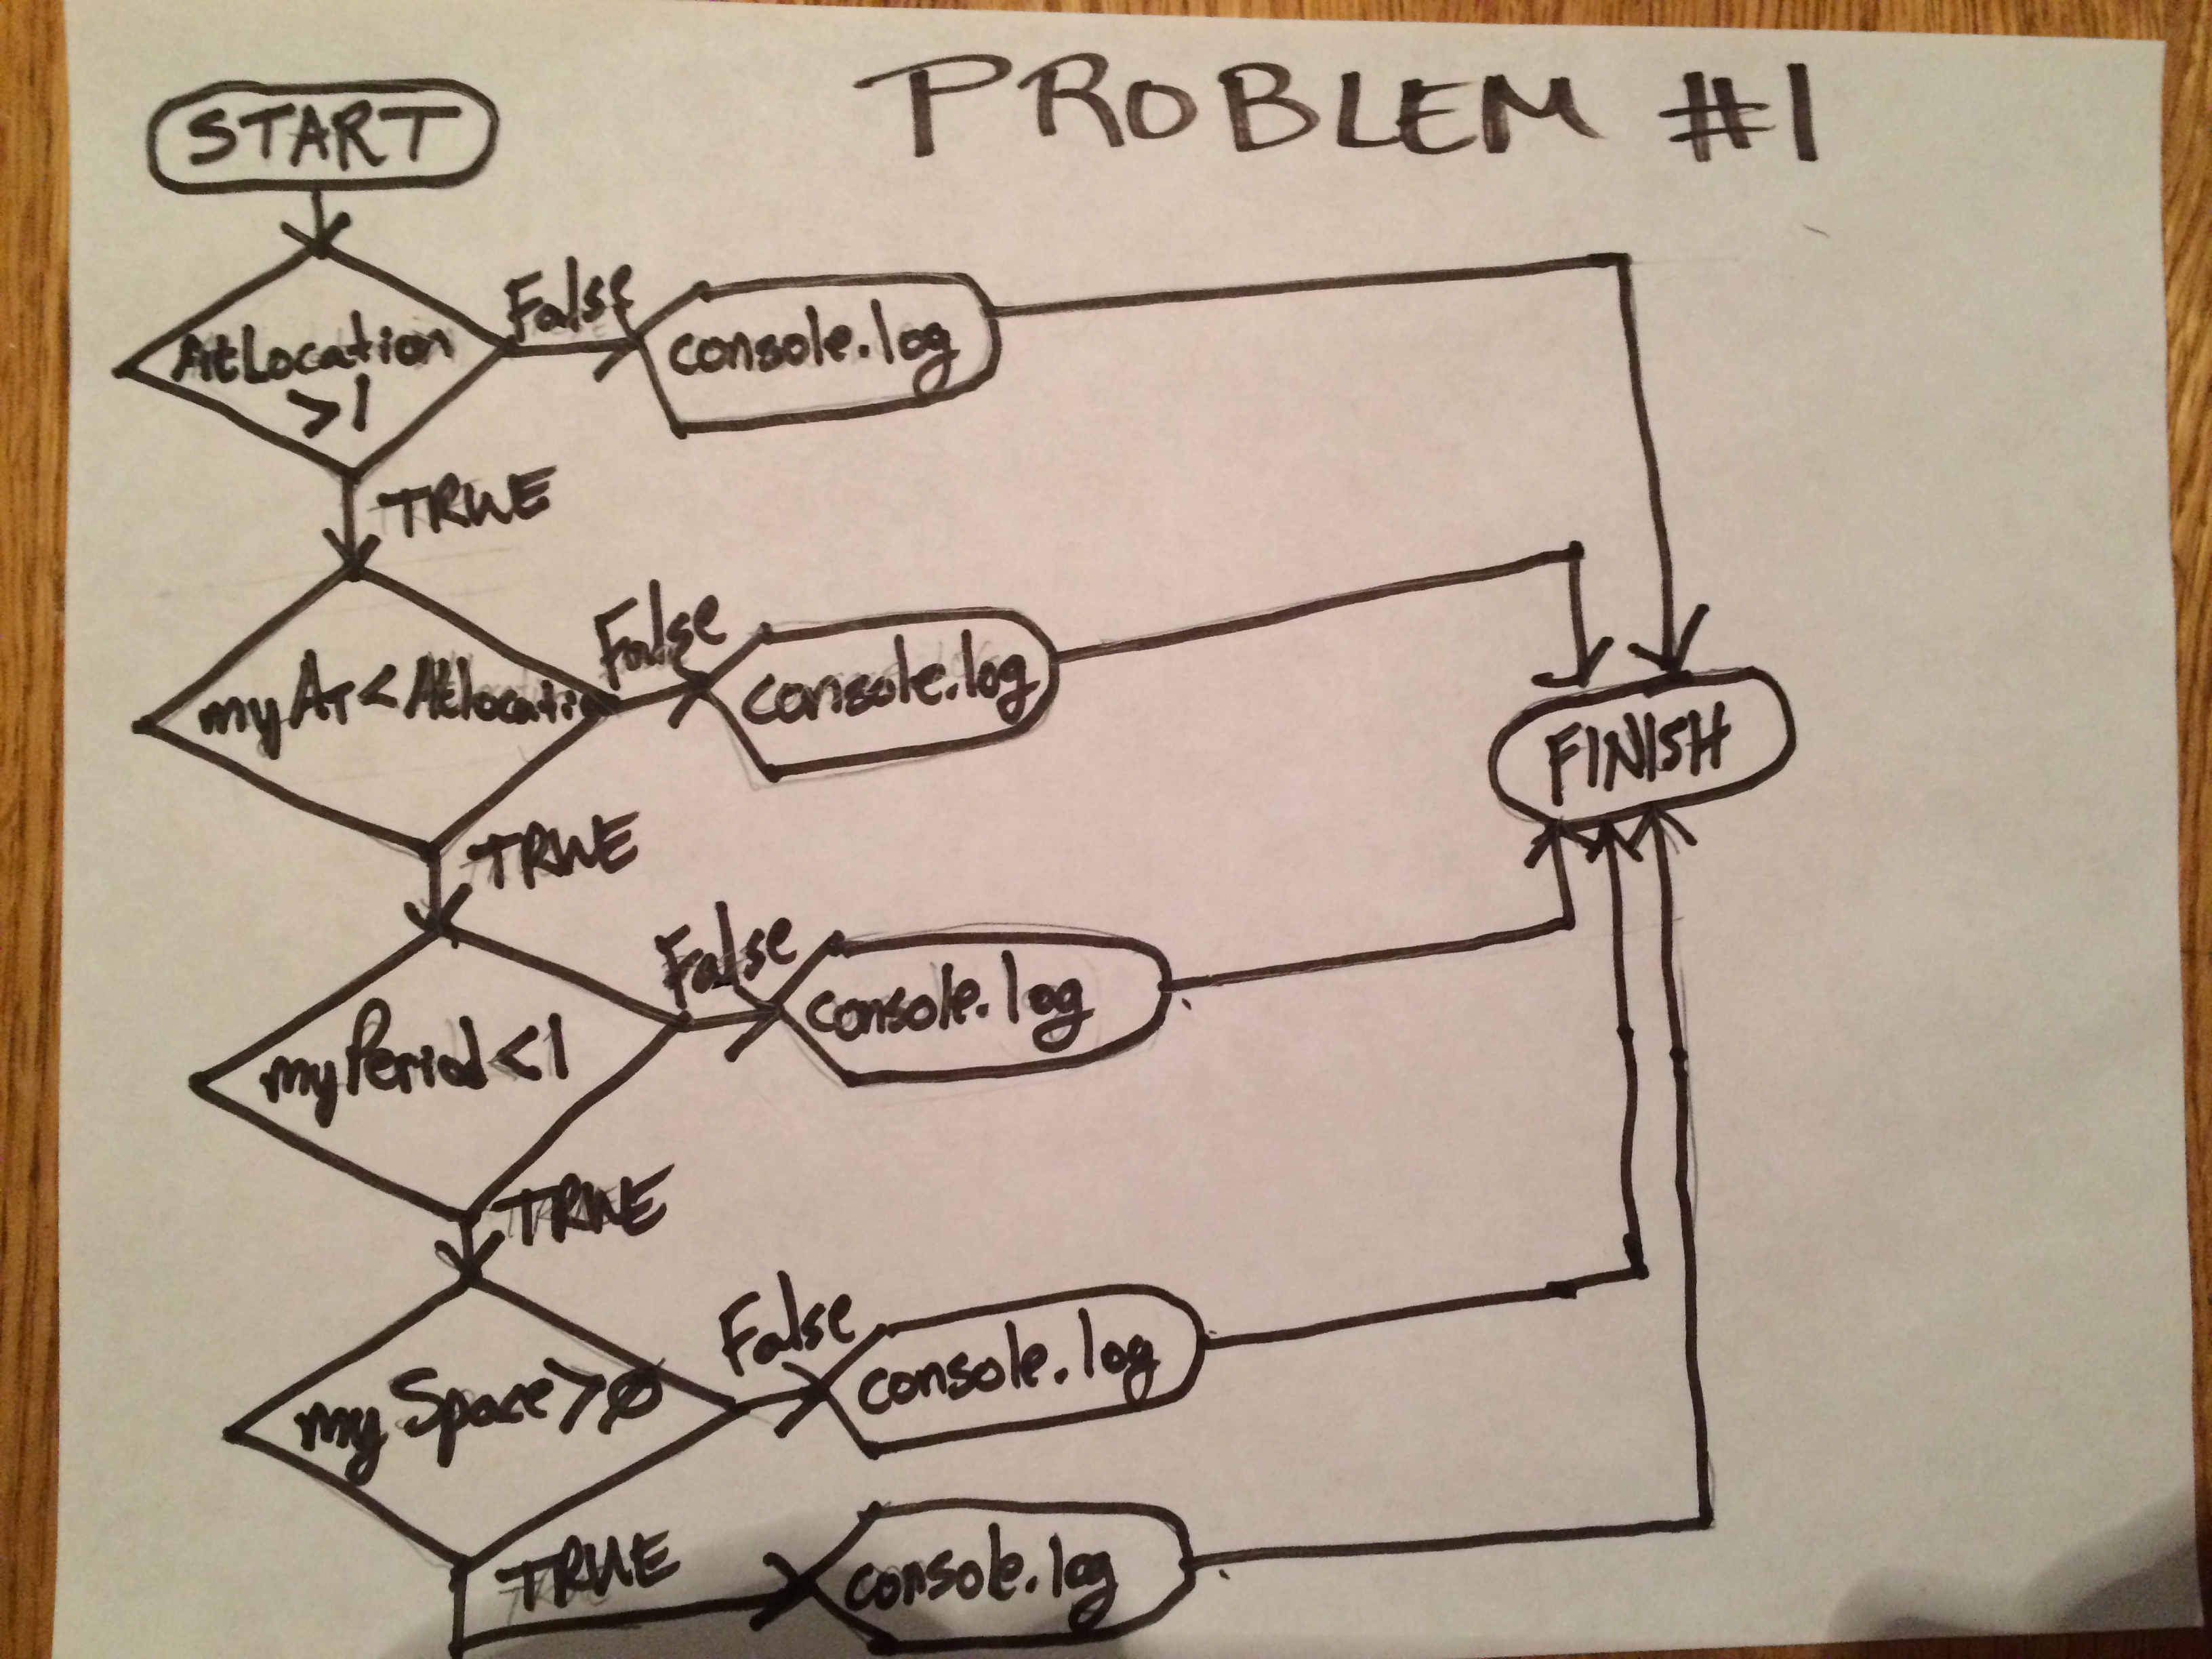 PROBLEM #1
START
AtLocation
>1
False
console.log
TRUE
myAr<AtLocatio
False
console.log
TRUE
myPeriod<1
False
console.log
TRUE
mySpace>0
False
console.log
TRUE
console.log
FINISH